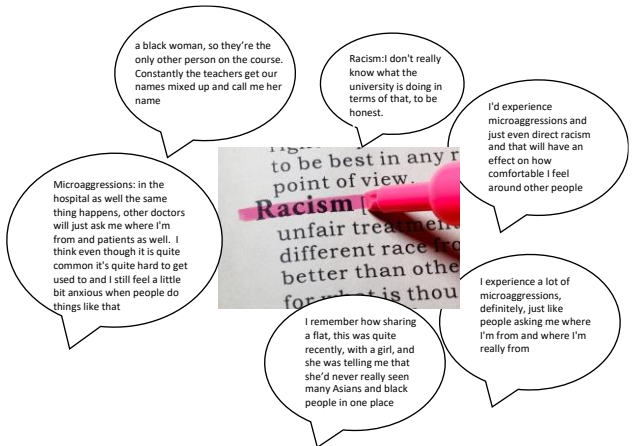 a black woman, so they're the
only other person on the course.
Constantly the teachers get our
names mixed up and call me her
name
Racism:I don't really
know what the
university is doing in
terms of that, to be
honest.
I'd experience
microaggressions and
just even direct racism
and that will have an
effect on how
comfortable I feel
around other people
Microaggressions: in the
hospital as well the same
thing happens, other doctors
will just ask me where I'm
from and patients as well. I
think even though it is quite
common it's quite hard to get
used to and I still feel a little
bit anxious when people do
things like that
to be best in any
point of view.
Racism
unfair treatment
different race
better than
for is
I experience a lot of
microaggressions,
definitely, just like
people asking me where
I'm from and where I'm
really from
I remember how sharing
a flat, this was quite
recently, with a girl, and
she was telling me that
she'd never really seen
many Asians and black
people in one place